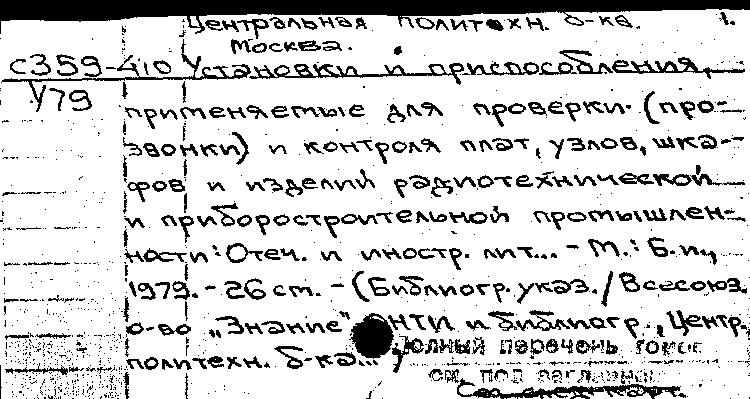 Центральная политехн. б-ка. 1.
Москва.
С359-410 Установки и приспособления,
У79
применяемые для проверки (про-
звонки) и контроля плат, узлов, шка-
фов и изделий радиотехнической
и приборостроительной промышлен-
ности: Отеч. и иностр. лит... - М.: Б.и.,
1979. - 26 ст. - (Библиогр. указ. / Всесоюз.
о-во „Знание" ОНТИ и библиогр., Центр.
политехн. б-ка... )
Полный перечень
см. под заглавием
См. след. карт.